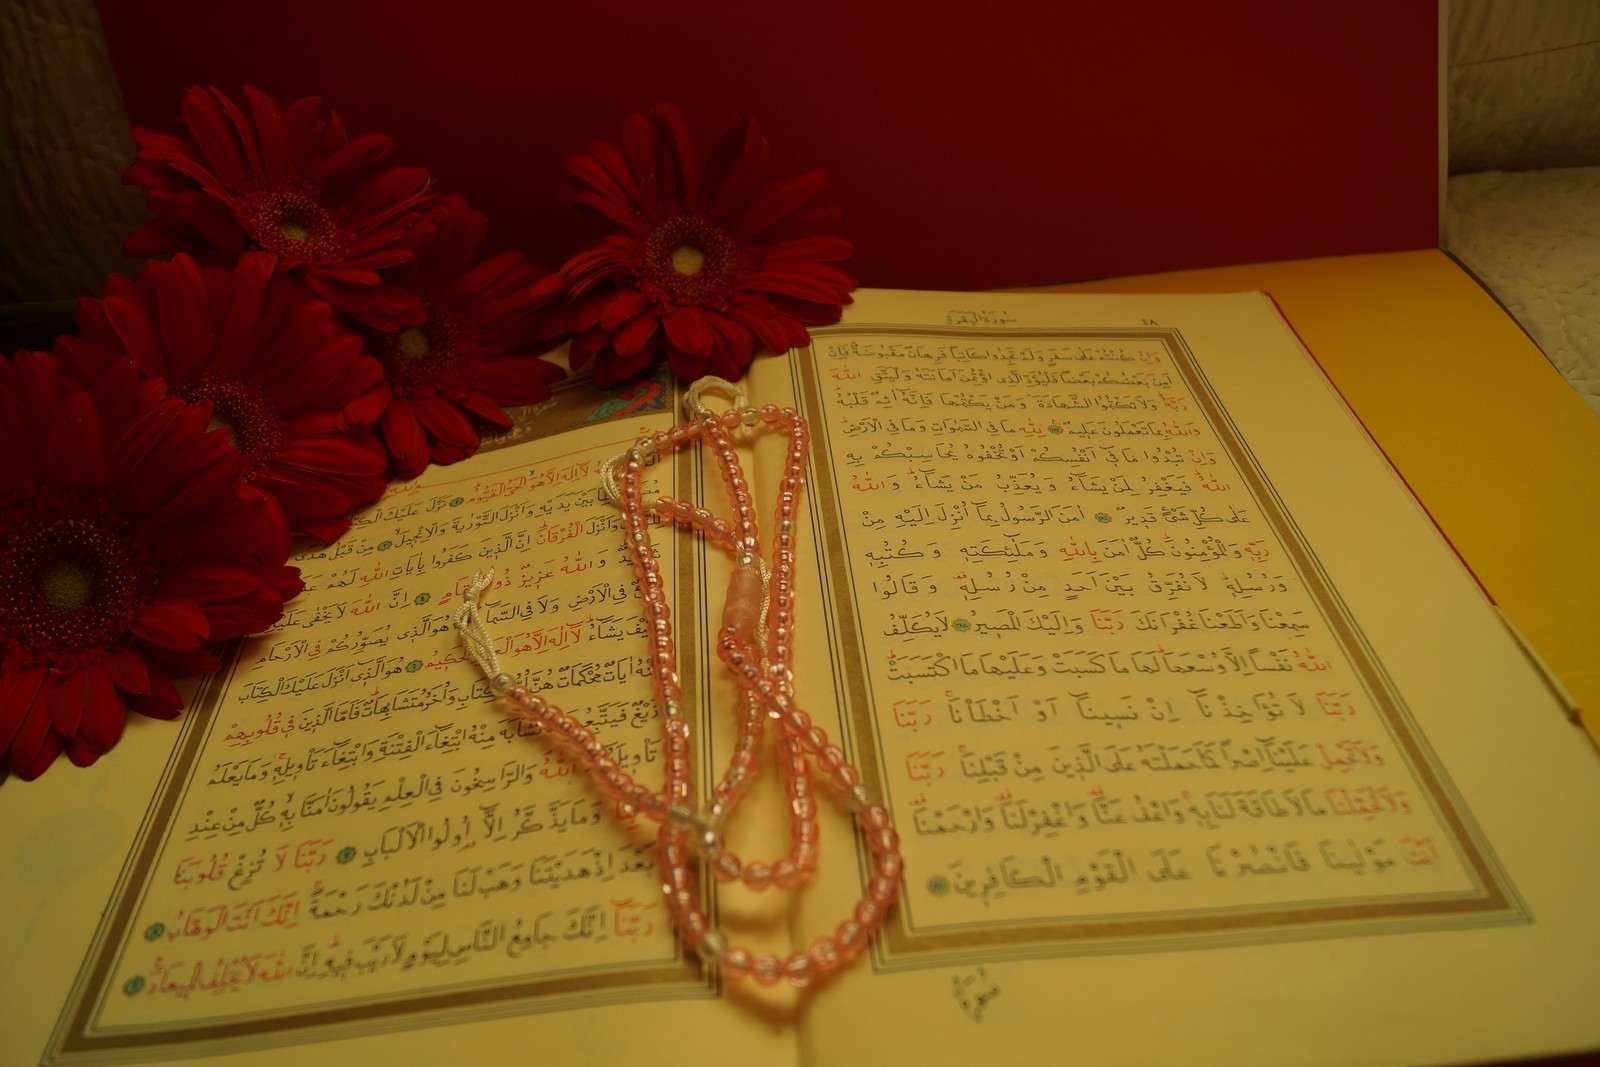 سورة البقرة ٤٨
وَاِنْ كُنْتُمْ عَلٰى سَفَرٍ وَلَمْ تَجِدُوا كَاتِبًا فَرِهَانٌ مَقْبُوضَةٌ فَاِنْ
اَمِنَ بَعْضُكُمْ بَعْضًا فَلْيُؤَدِّ الَّذِى اؤْتُمِنَ اَمَانَتَهُ وَلْيَتَّقِ اللّٰهَ
رَبَّهُ وَلَا تَكْتُمُوا الشَّهَادَةَ وَمَنْ يَكْتُمْهَا فَاِنَّهُ اٰثِمٌ قَلْبُهُ
وَاللّٰهُ بِمَا تَعْمَلُونَ عَلِيمٌ لِلّٰهِ مَا فِى السَّمٰوَاتِ وَمَا فِى الْاَرْضِ
وَاِنْ تُبْدُوا مَا فِى اَنْفُسِكُمْ اَوْ تُخْفُوهُ يُحَاسِبْكُمْ بِهِ
اللّٰهُ فَيَغْفِرُ لِمَنْ يَشَاءُ وَيُعَذِّبُ مَنْ يَشَاءُ وَاللّٰهُ
عَلٰى كُلِّ شَىْءٍ قَدِيرٌ اٰمَنَ الرَّسُولُ بِمَا اُنْزِلَ اِلَيْهِ مِنْ
رَبِّهِ وَالْمُؤْمِنُونَ كُلٌّ اٰمَنَ بِاللّٰهِ وَمَلٰئِكَتِهِ وَكُتُبِهِ
وَرُسُلِهِ لَا نُفَرِّقُ بَيْنَ اَحَدٍ مِنْ رُسُلِهِ وَقَالُوا
سَمِعْنَا وَاَطَعْنَا غُفْرَانَكَ رَبَّنَا وَاِلَيْكَ الْمَصِيرُ لَا يُكَلِّفُ
اللّٰهُ نَفْسًا اِلَّا وُسْعَهَا لَهَا مَا كَسَبَتْ وَعَلَيْهَا مَا اكْتَسَبَتْ
رَبَّنَا لَا تُؤَاخِذْنَا اِنْ نَسِينَا اَوْ اَخْطَاْنَا رَبَّنَا
وَلَا تَحْمِلْ عَلَيْنَا اِصْرًا كَمَا حَمَلْتَهُ عَلَى الَّذِينَ مِنْ قَبْلِنَا رَبَّنَا
وَلَا تُحَمِّلْنَا مَا لَا طَاقَةَ لَنَا بِهِ وَاعْفُ عَنَّا وَاغْفِرْ لَنَا وَارْحَمْنَا
اَنْتَ مَوْلٰينَا فَانْصُرْنَا عَلَى الْقَوْمِ الْكَافِرِينَ
سورة
لَا اِلٰهَ اِلَّا هُوَ الْحَىُّ الْقَيُّومُ نَزَّلَ عَلَيْكَ
بَيْنَ يَدَيْهِ وَاَنْزَلَ التَّوْرٰيةَ وَالْاِنْجِيلَ مِنْ قَبْلُ هُدًى
وَاَنْزَلَ الْفُرْقَانَ اِنَّ الَّذِينَ كَفَرُوا بِاٰيَاتِ اللّٰهِ لَهُمْ
وَاللّٰهُ عَزِيزٌ ذُو اِنَّ اللّٰهَ لَا يَخْفٰى عَلَيْهِ
فِى الْاَرْضِ وَلَا فِى السَّمَاءِ هُوَ الَّذِى يُصَوِّرُكُمْ فِى الْاَرْحَامِ
يَشَاءُ لَا اِلٰهَ اِلَّا هُوَ الْحَكِيمُ هُوَ الَّذِى اَنْزَلَ عَلَيْكَ الْكِتَابَ
اٰيَاتٌ مُحْكَمَاتٌ هُنَّ وَاُخَرُ مُتَشَابِهَاتٌ فَاَمَّا الَّذِينَ فِى قُلُوبِهِمْ
زَيْغٌ تَشَابَهَ مِنْهُ ابْتِغَاءَ الْفِتْنَةِ وَابْتِغَاءَ تَاْوِيلِهِ وَمَا يَعْلَمُ
اللّٰهُ وَالرَّاسِخُونَ فِى الْعِلْمِ يَقُولُونَ اٰمَنَّا بِهِ كُلٌّ مِنْ عِنْدِ
وَمَا يَذَّكَّرُ اِلَّا اُولُوا الْاَلْبَابِ رَبَّنَا لَا تُزِغْ قُلُوبَنَا
بَعْدَ اِذْ هَدَيْتَنَا وَهَبْ لَنَا مِنْ لَدُنْكَ رَحْمَةً اِنَّكَ اَنْتَ الْوَهَّابُ
رَبَّنَا اِنَّكَ جَامِعُ النَّاسِ لِيَوْمٍ لَا رَيْبَ فِيهِ اِنَّ اللّٰهَ لَا يُخْلِفُ الْمِيعَادَ